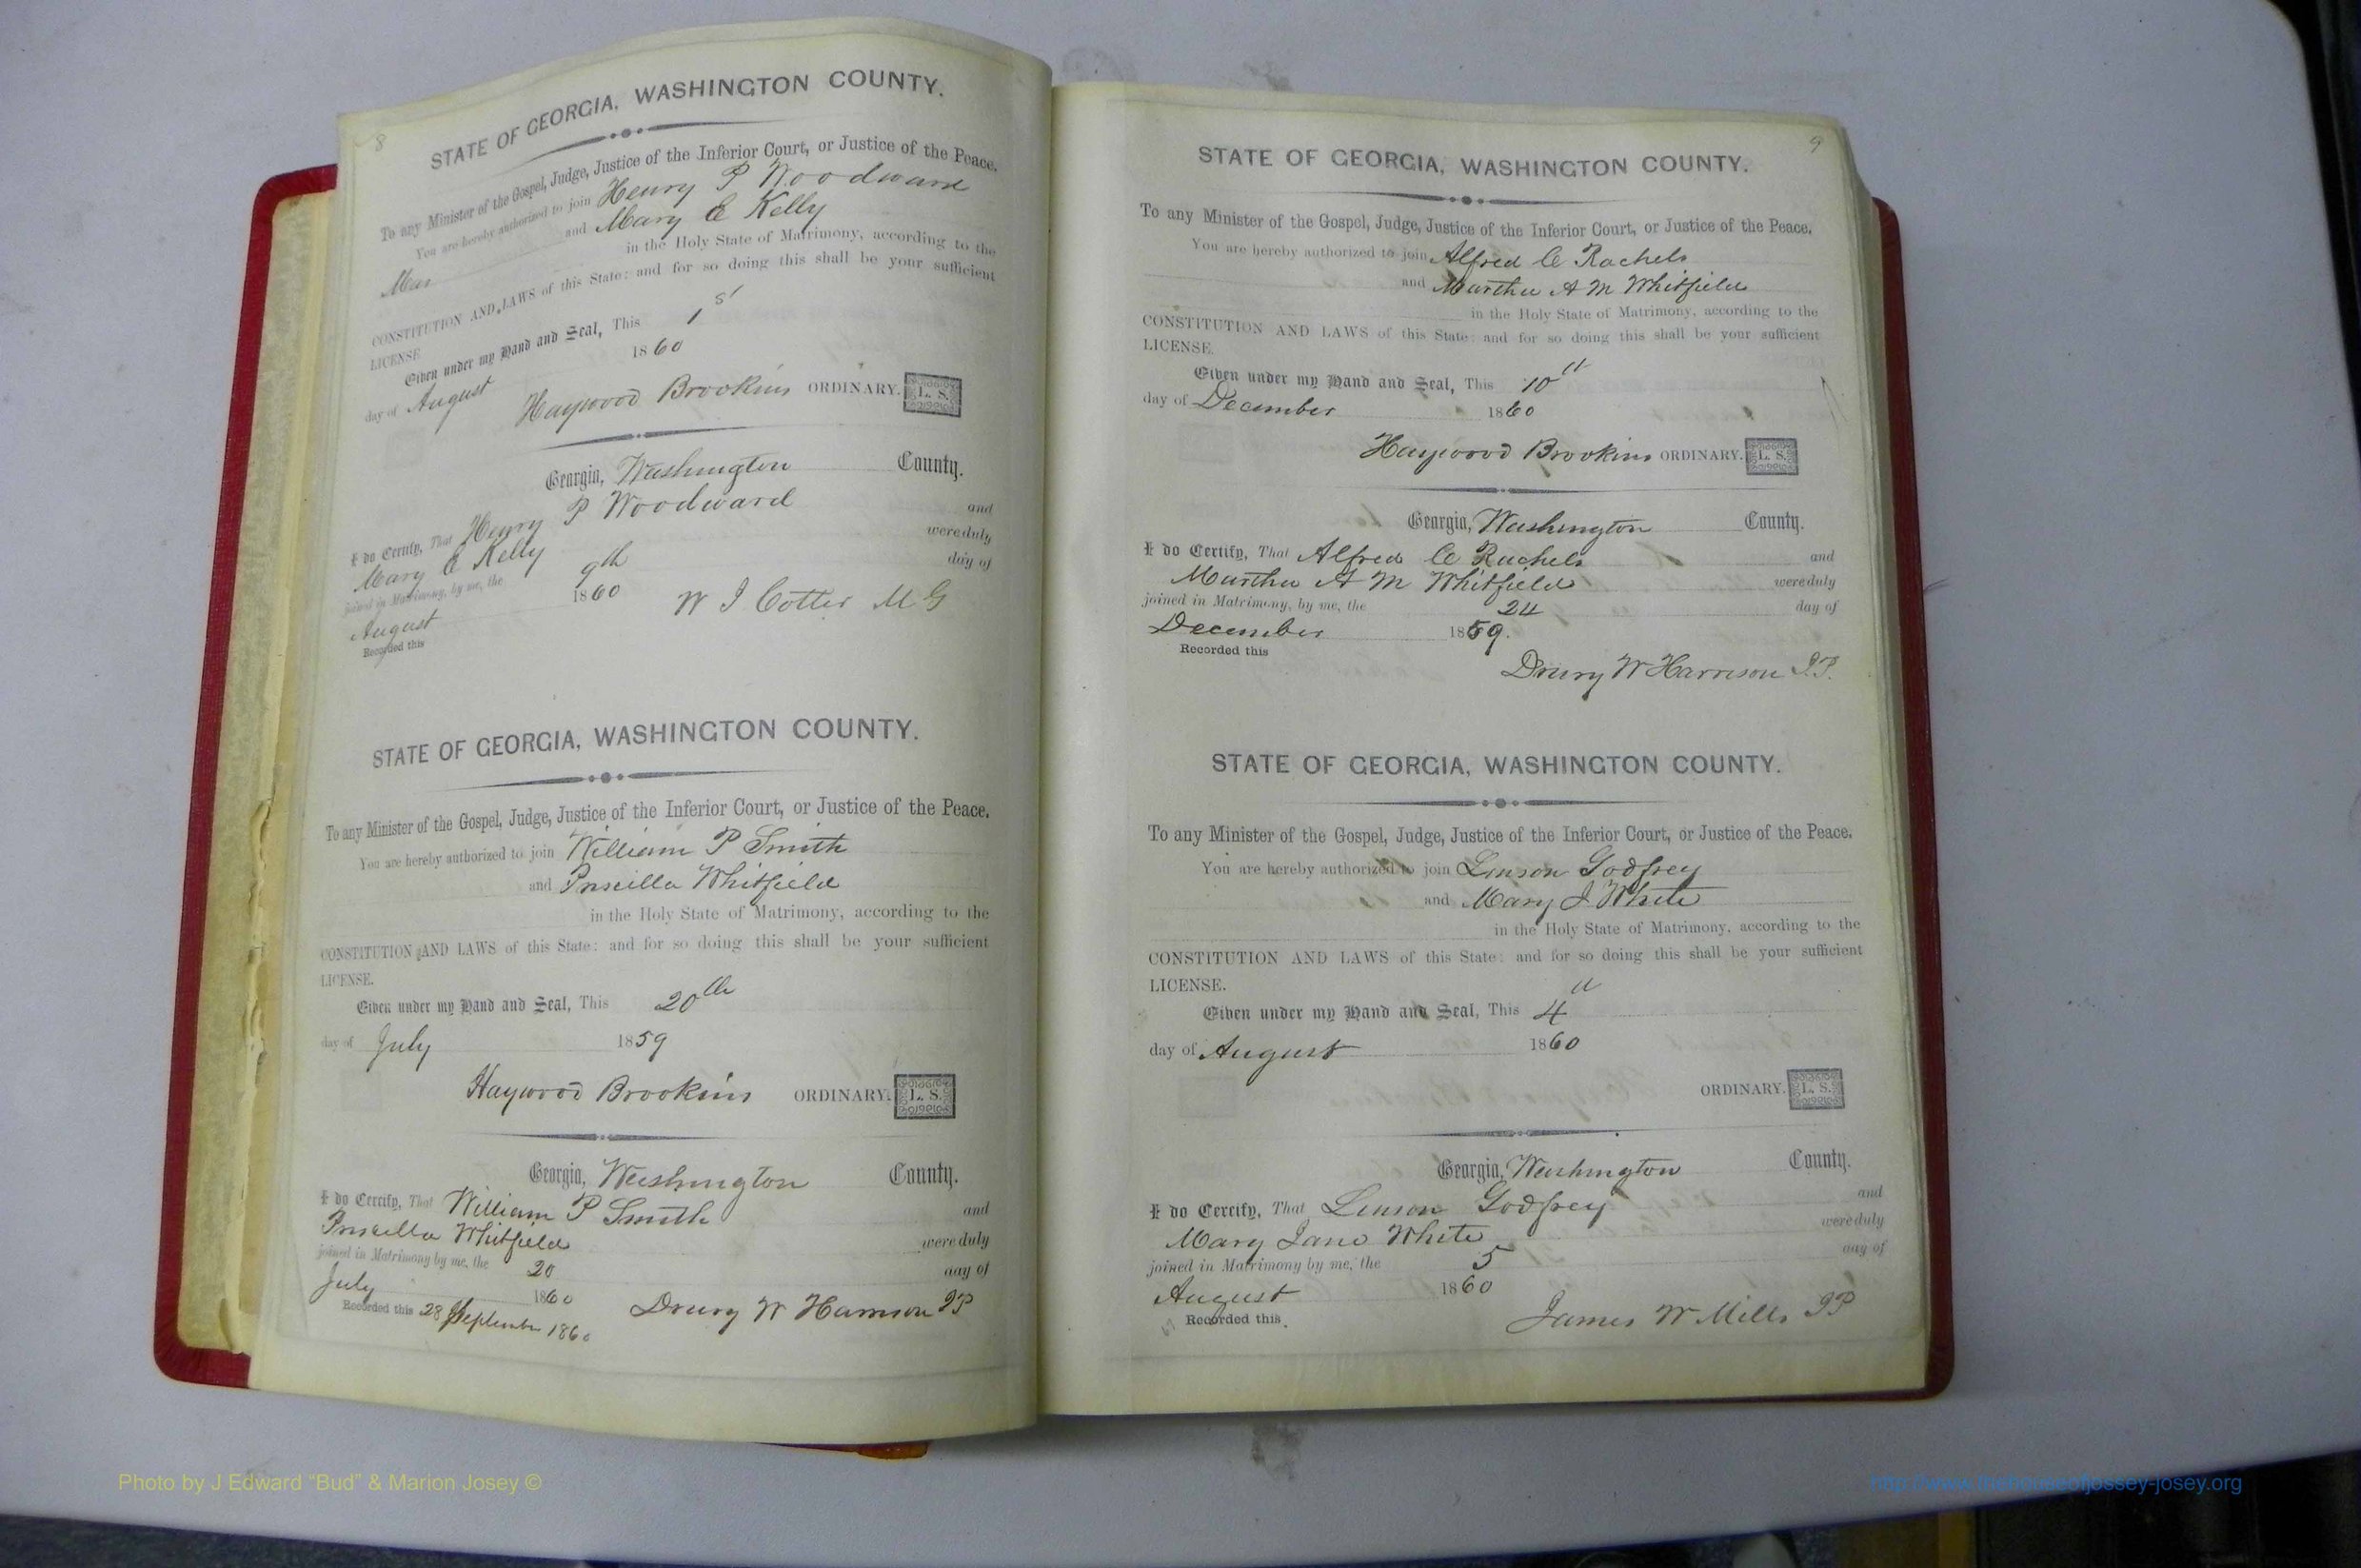 8
STATE OF GEORGIA, WASHINGTON COUNTY.
To any Minister of the Gospel, Judge, Justice of the Inferior Court, or Justice of the Peace.
You are hereby authorized to join Henry P Woodward
and Mary E Kelly
in the Holy State of Matrimony, according to the
CONSTITUTION AND LAWS of this State: and for so doing this shall be your sufficient
LICENSE
Given under my Hand and Seal, This 1st
day of August 1860
Haywood Brookins ORDINARY. L. S.
Georgia, Washington County.
I do Certify, That Henry P Woodward and
Mary E Kelly were duly
joined in Matrimony, by me, the 9th day of
August 1860
W J Cotter M G
Recorded this
STATE OF GEORGIA, WASHINGTON COUNTY.
To any Minister of the Gospel, Judge, Justice of the Inferior Court, or Justice of the Peace.
You are hereby authorized to join William P Smith
and Priscilla Whitfield
in the Holy State of Matrimony, according to the
CONSTITUTION AND LAWS of this State: and for so doing this shall be your sufficient
LICENSE.
Given under my Hand and Seal, This 20th
day of July 1859
Haywood Brookins ORDINARY. L. S.
Georgia, Washington County.
I do Certify, That William P Smith and
Priscilla Whitfield were duly
joined in Matrimony by me, the 20 day of
July 1860
Recorded this 28 September 1860 Drury W Harrison JP
9
STATE OF GEORGIA, WASHINGTON COUNTY.
To any Minister of the Gospel, Judge, Justice of the Inferior Court, or Justice of the Peace.
You are hereby authorized to join Alfred C Rachels
and Martha A M Whitfield
in the Holy State of Matrimony, according to the
CONSTITUTION AND LAWS of this State: and for so doing this shall be your sufficient
LICENSE.
Given under my Hand and Seal, This 10"
day of December 1860
Haywood Brookins ORDINARY. L. S.
Georgia, Washington County.
I do Certify, That Alfred C Rachels and
Martha A M Whitfield were duly
joined in Matrimony, by me, the 24 day of
December 1859.
Recorded this
Drury W Harrison J.P.
STATE OF GEORGIA, WASHINGTON COUNTY.
To any Minister of the Gospel, Judge, Justice of the Inferior Court, or Justice of the Peace.
You are hereby authorized to join Linson Godfrey
and Mary J White
in the Holy State of Matrimony, according to the
CONSTITUTION AND LAWS of this State: and for so doing this shall be your sufficient
LICENSE.
Given under my Hand and Seal, This 4"
day of August 1860
ORDINARY. L. S.
Georgia, Washington County.
I do Certify, That Linson Godfrey and
Mary Jane White were duly
joined in Matrimony by me, the 5 day of
August 1860
Recorded this James W Mills JP
Photo by J Edward “Bud” & Marion Josey ©
http://www.thehouseofjossey-josey.org